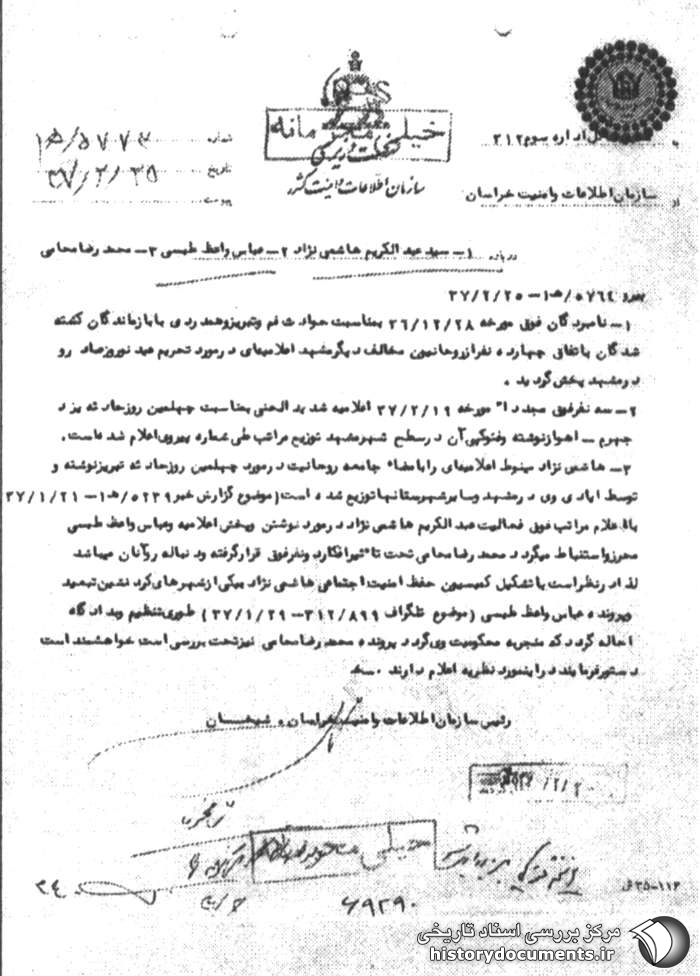 خیلی محرمانه
نخست وزیری
سازمان اطلاعات و امنیت کشور
به اداره سوم ۳۱۲
از سازمان اطلاعات و امنیت خراسان
شماره ۵۷۷۳/۱ه
تاریخ
پیوست
درباره ۱- سید عبدالکریم هاشمی نژاد ۲- عباس واعظ طبسی ۳- محمد رضا محامی
پیرو ۵۷۶۴/۱ه-۳۷/۲/۲۵
۱- نامبردگان فوق مورخه ۳۶/۱۲/۲۸ بمناسبت حوادث قم وتبریز وهمدردی با بازماندگان کشته
شدگان باتفاق چهارده نفر از روحانیون مخالف دیگر مشهد اعلامیه‌ای در مورد تحریم عید نوروز صادر و
در مشهد پخش گردید .
۲- سه نفر فوق مجددا" مورخه ۳۷/۲/۱۹ اعلامیه شدیدالحنی بمناسبت چهلمین روز حادثه یزد
جهرم - اهواز نوشته وفتوکپی آن در سطح شهر مشهد توزیع مراتب طی شماره پیروی اعلام شده است.
۳- هاشمی نژاد منوط اعلامیه‌ای را با مضاء جامعه روحانیت در مورد چهلمین روز حادثه تبریز نوشته و
توسط ایادی وی در مشهد وسایر شهرستانها توزیع شده است (موضوع گزارش خبر ۵۲۳۹/۱ه-۳۷/۱/۲۱
با اعلام مراتب فوق فعالیت عبدالکریم هاشمی نژاد در مورد نوشتن وپخش اعلامیه وعباس واعظ طبسی
محرز و استنباط میگردد محمد رضا محامی تحت تاثیر افکار دو نفر فوق قرار گرفته و دنباله رو آنان میباشد
لذا در نظر است با تشکیل کمیسیون حفظ امنیت اجتماعی هاشمی نژاد بیکی از شهرهای کرد نشین تبعید
وپرونده عباس واعظ طبسی (موضوع تلگراف ۳۱۲/۸۹۹-۳۷/۱/۲۹) طوری تنظیم و بدادگاه
احاله گردد که منجر به محکومیت وی گردد پرونده محمد رضا محامی نیز تحت بررسی است خواهشمند است
دستور فرمایند در اینمورد نظریه اعلام دارند .
رئیس سازمان اطلاعات و امنیت خراسان . شیخان
۶۹۲۹۰
۲۴
۱۱۳-۳۵ ف
مرکز بررسی اسناد تاریخی
historydocuments.ir